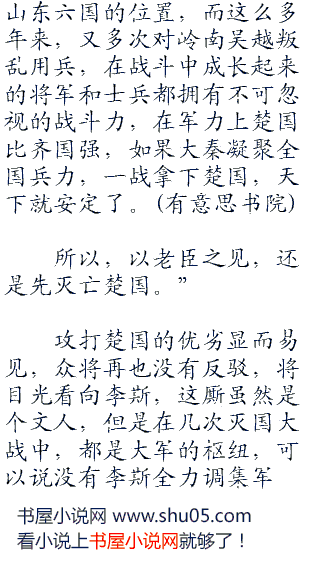 山东六国的位置，而这么多
年来，又多次对岭南吴越叛
乱用兵，在战斗中成长起来
的将军和士兵都拥有不可忽
视的战斗力，在军力上楚国
比齐国强，如果大秦凝聚全
国兵力，一战拿下楚国，天
下就安定了。(有意思书院)
所以，以老臣之见，还
是先灭亡楚国。”
攻打楚国的优劣显而易
见，众将再也没有反驳，将
目光看向李斯，这厮虽然是
个文人，但是在几次灭国大
战中，都是大军的枢纽，可
以说没有李斯全力调集军
书屋小说网 www.shu05.com
看小说上书屋小说网就够了！